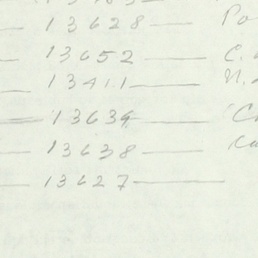 13628 — Po
13652 — C.
13411 — N.
13639 — C
13638 —
13627 —